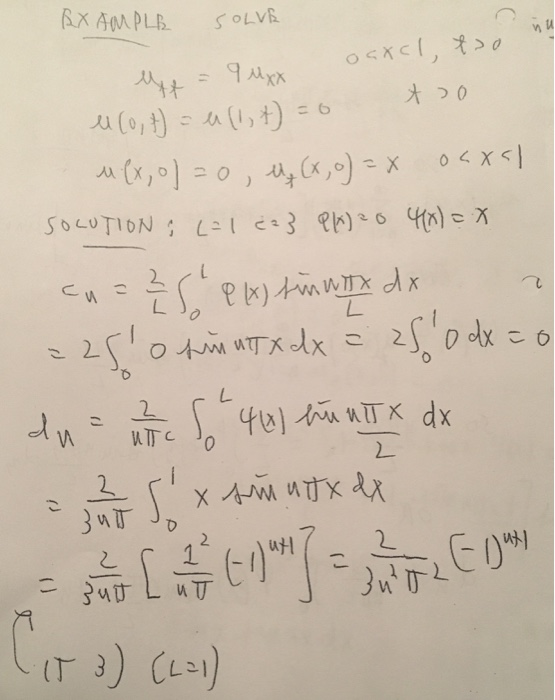 EXAMPLE SOLVE
u_tt = 9 u_xx 0<x<1, t>0
u(0,t) = u(1,t) = 0 t>0
u(x,0) = 0, u_t(x,0) = x 0<x<1
SOLUTION: L=1 c=3 φ(x)=0 ψ(x)=x
c_n = 2/L ∫_0^L φ(x) sin nπx/L dx
= 2∫_0^1 0 sin nπx dx = 2∫_0^1 0 dx = 0
d_n = 2/nπc ∫_0^L ψ(x) sin nπx/2 dx
= 2/3nπ ∫_0^1 x sin nπx dx
= 2/3nπ [ 1^2/nπ (-1)^{n+1} ] = 2/3n^2π^2 (-1)^{n+1}
(IT 3) (L=1)